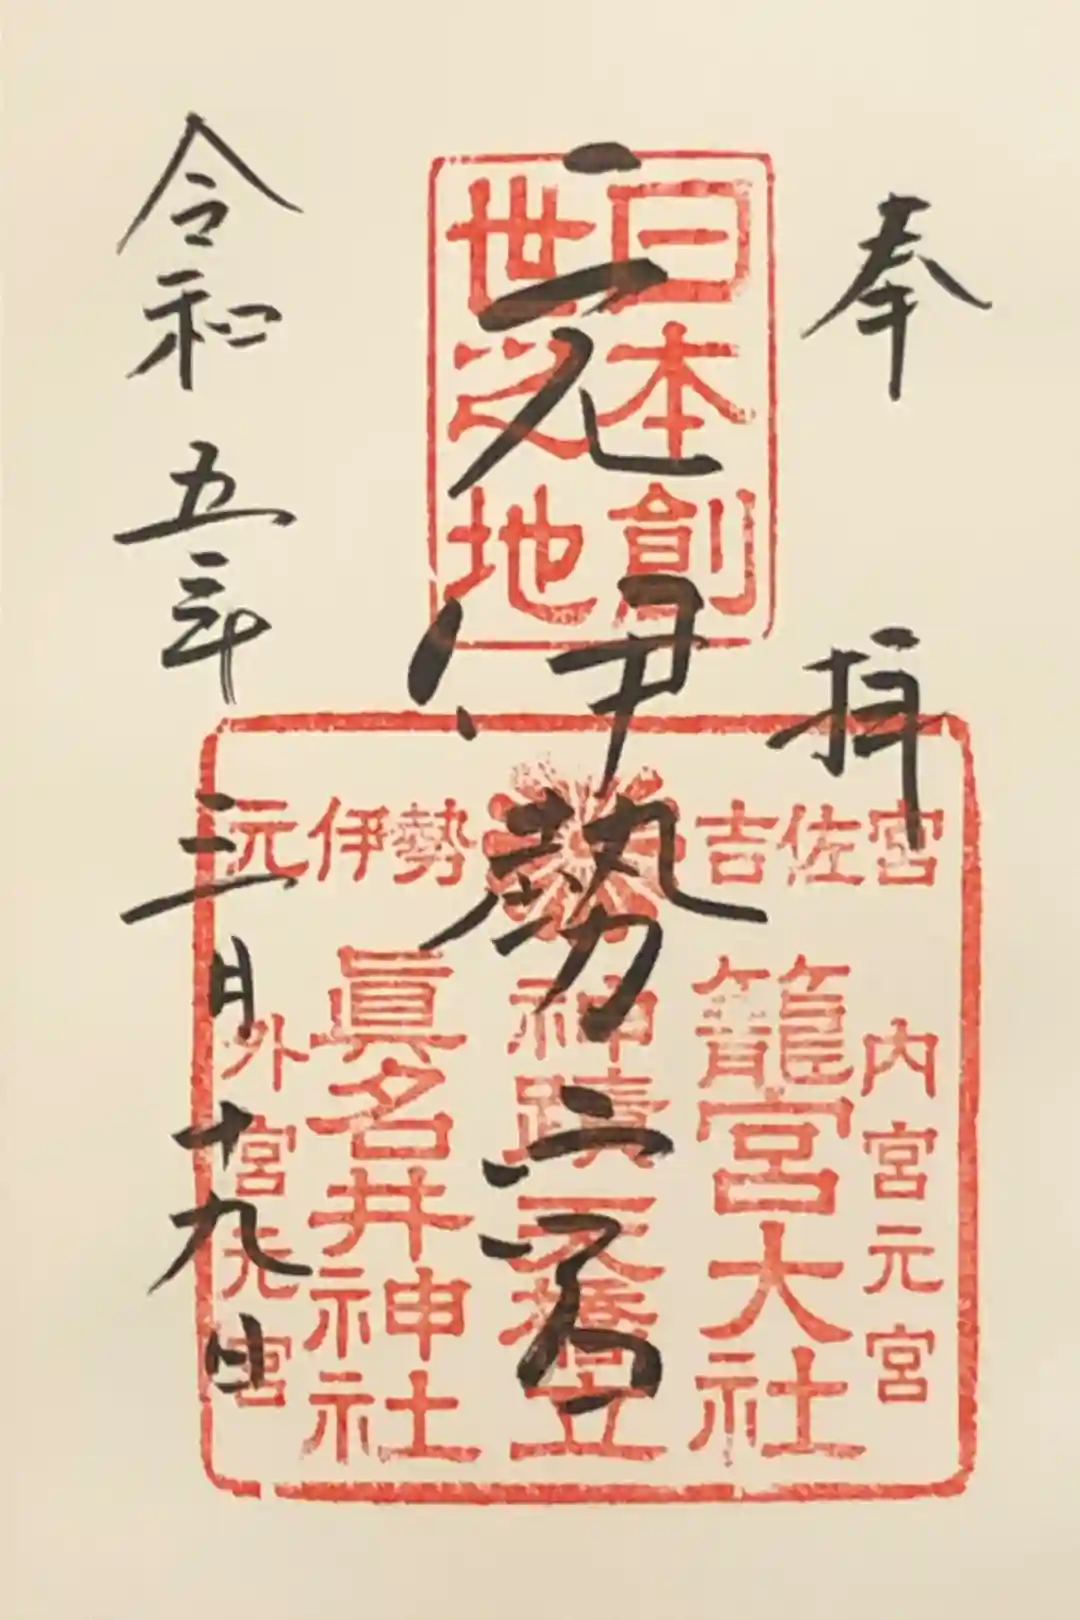 奉拝
日本創
世之地
元伊勢
元伊勢 吉佐宮
内宮元宮
籠宮大社
神蹟天橋立
眞名井神社
外宮元宮
令和五年三月十九日